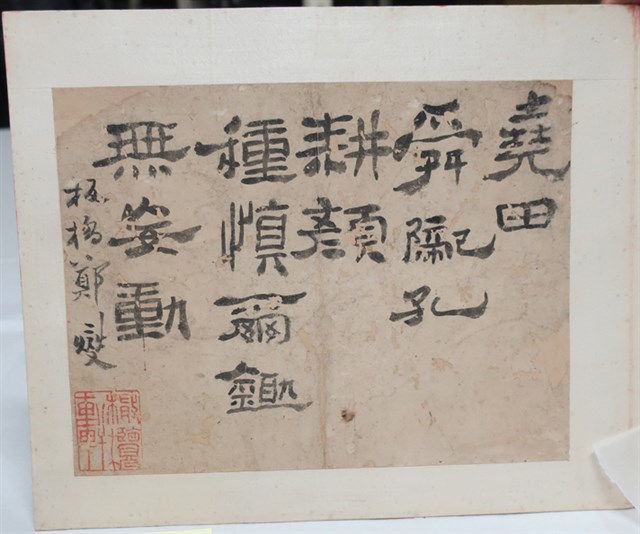 堯田
舜隴孔
耕顏
種慎爾鋤
無妄動
板橋鄭燮